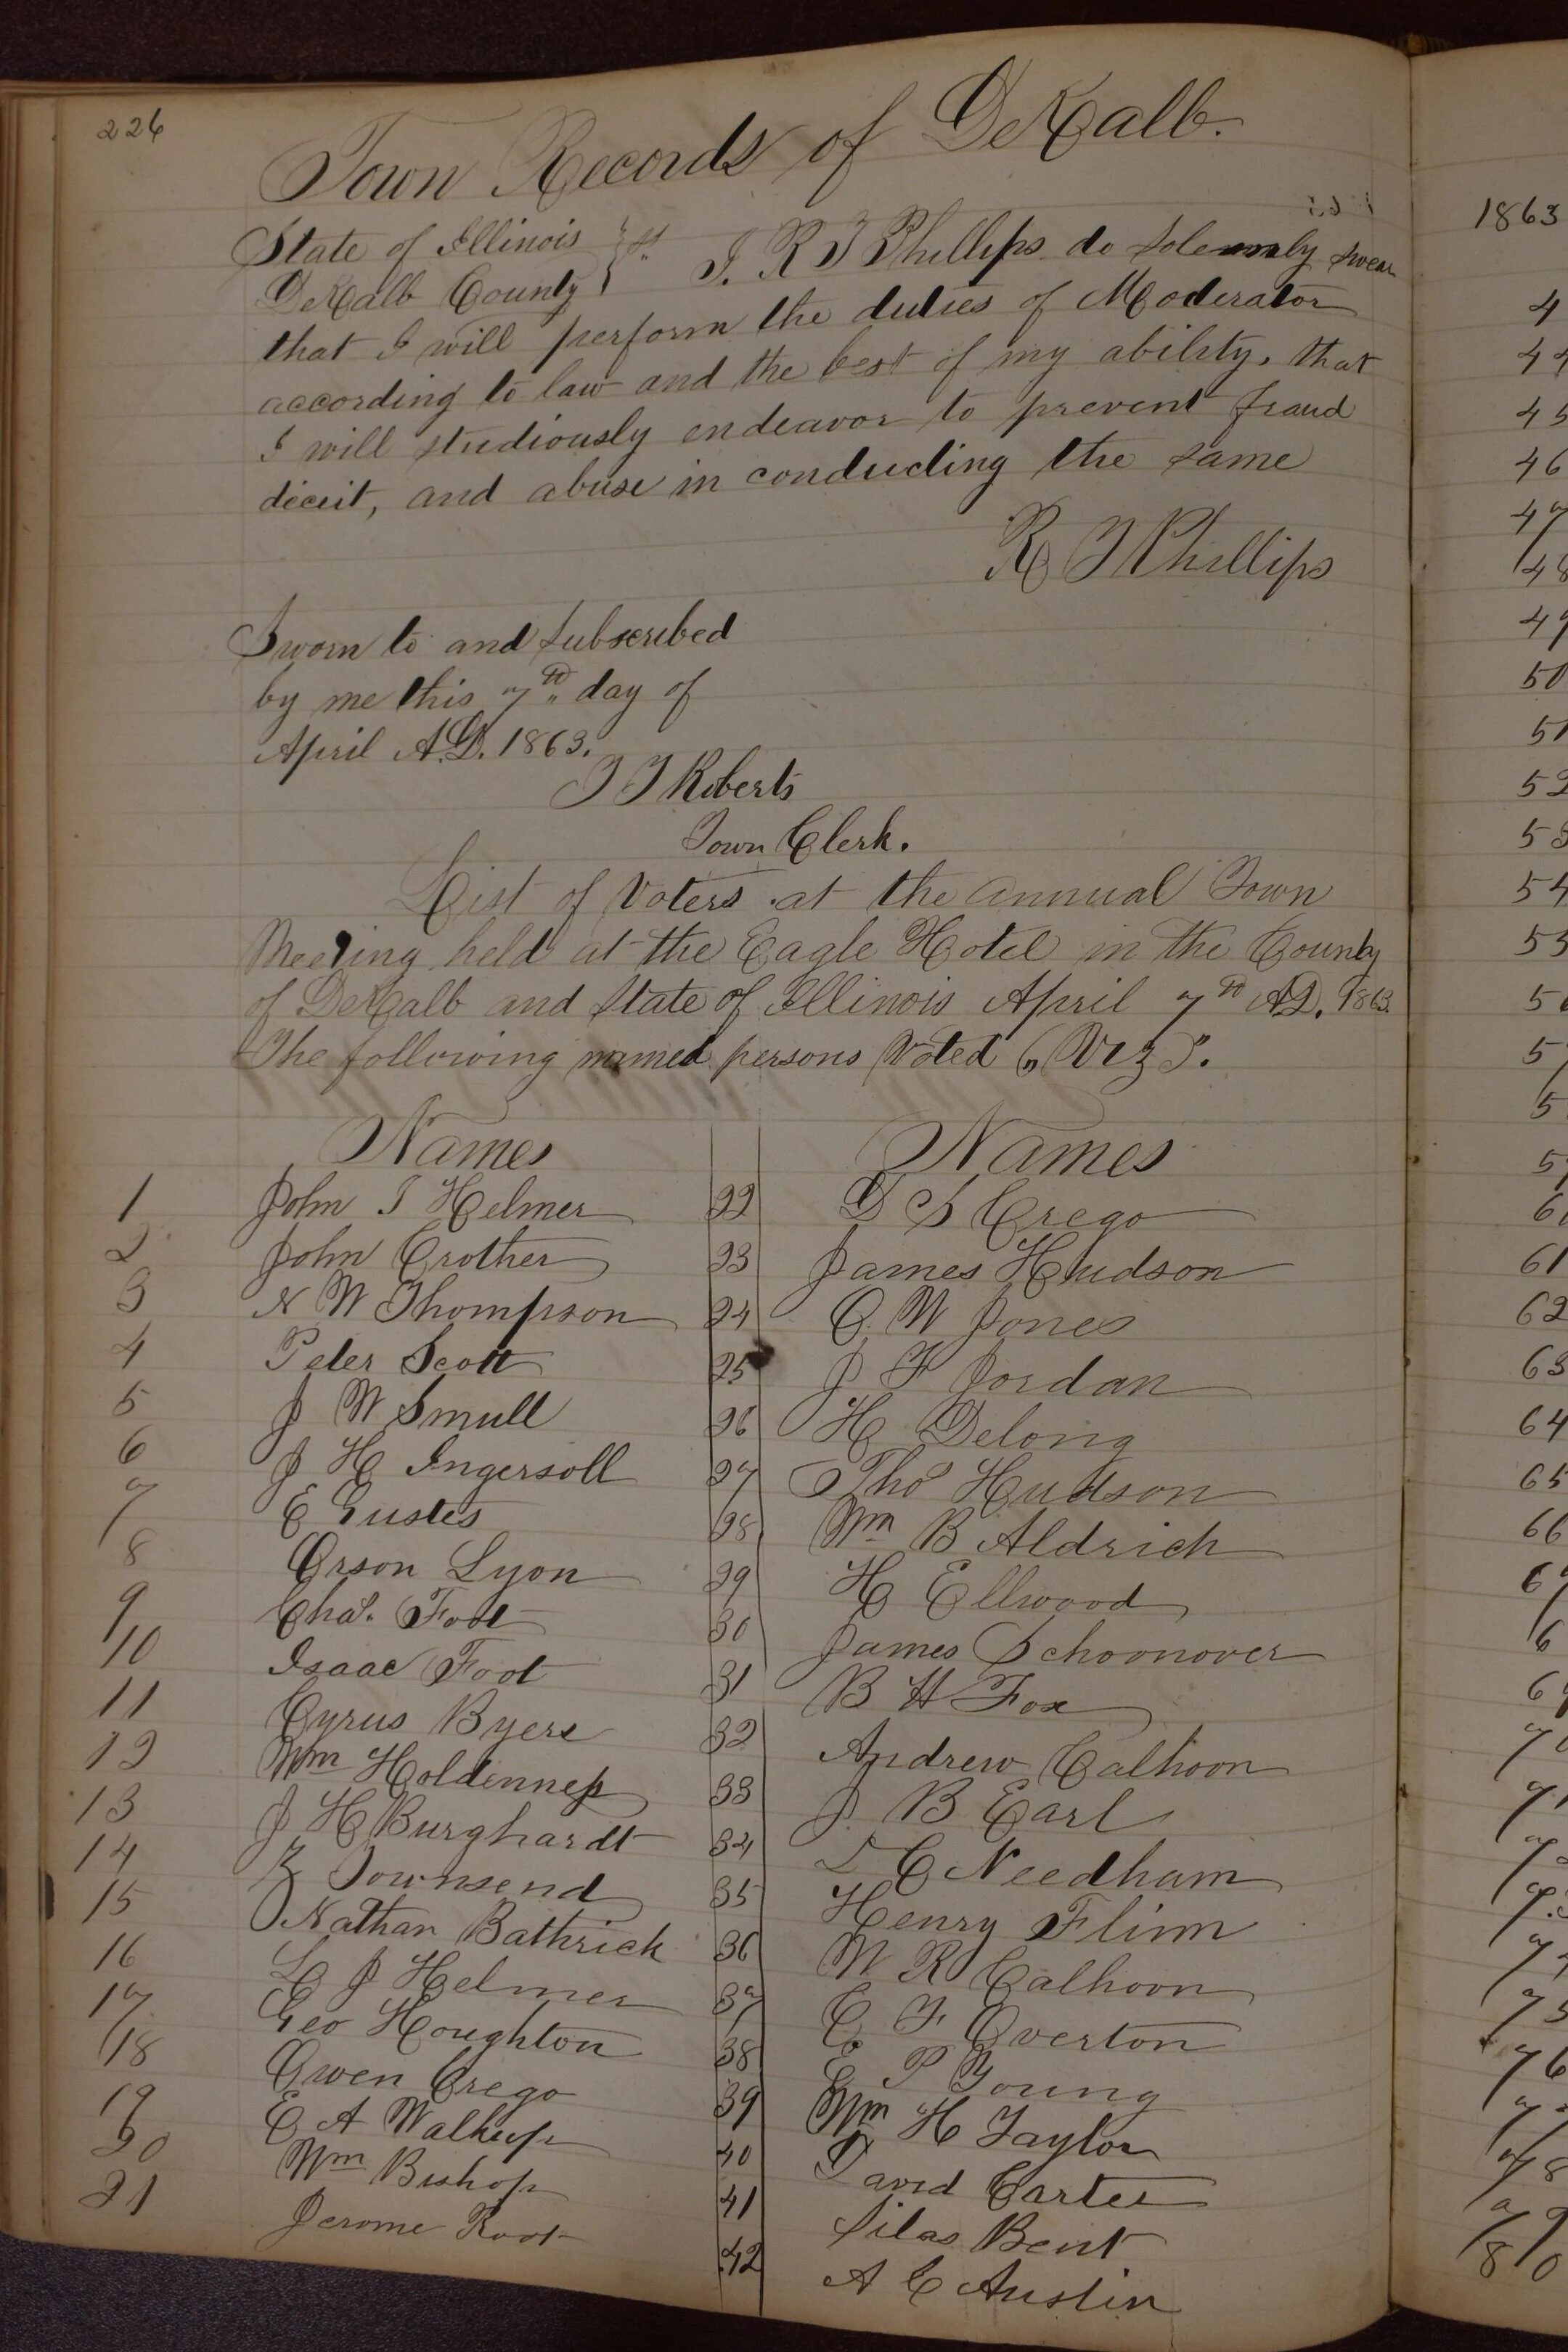 226
Town Records of DeKalb.
State of Illinois } ss I. R T Phillips do solemnly swear
DeKalb County }
that I will perform the duties of Moderator
according to law and the best of my ability, that
I will studiously endeavor to prevent fraud
deceit, and abuse in conducting the same
R T Phillips
Sworn to and Subscribed
by me this 7th day of
April A.D. 1863.
T T Roberts
Town Clerk.
List of Voters at the annual Town
Meeting held at the Eagle Hotel in the County
of DeKalb and State of Illinois April 7th AD. 1863.
The following named persons Voted (Viz).
Names Names
1 John I Helmer 22 D S Crego
2 John Crother 23 James Hudson
3 N W Thompson 24 O. W Jones
4 Peter Scott 25 J F Jordan
5 J W Smull 26 H Delong
6 J H Ingersoll 27 Tho Hudson
7 E Gustes 28 Wm B Aldrich
8 Orson Lyon 29 H Ellwood
9 Chas. Foot 30 James Schoonover
10 Isaac Foot 31 B H Fox
11 Cyrus Byers 32 Andrew Calhoon
12 Wm 33 J. B Earl
13 J H Burghardt 34 L C Needham
14 Z Townsend 35 Henry Flinn
15 Nathan Bathrick 36 W R Calhoon
16 L J Helmer 37 C F Overton
17 Geo Houghton 38 E P Young
18 Owen Crego 39 Wm H Taylor
19 E A Walkup 40 David Carter
20 Wm Bishop 41 Silas Bent
21 Jerome Root 42 A C Austin
1863
4
44
45
46
47
48
49
50
51
52
53
54
55
5
5
5
5
6
61
62
63
64
65
66
6
6
6
7
7
7
7
7
75
76
7
78
79
80